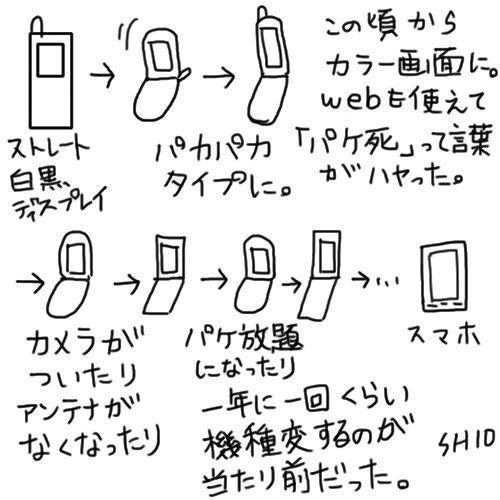 ストレート
白黒、
ディスプレイ
パカパカ
タイプに。
この頃から
カラー画面に。
webを使えて
「パケ死」って言葉
がハヤった。
カメラが
ついたり
アンテナが
なくなったり
パケ放題
になったり
一年に一回くらい
機種変するのが
当たり前だった。
…
スマホ
SHIO